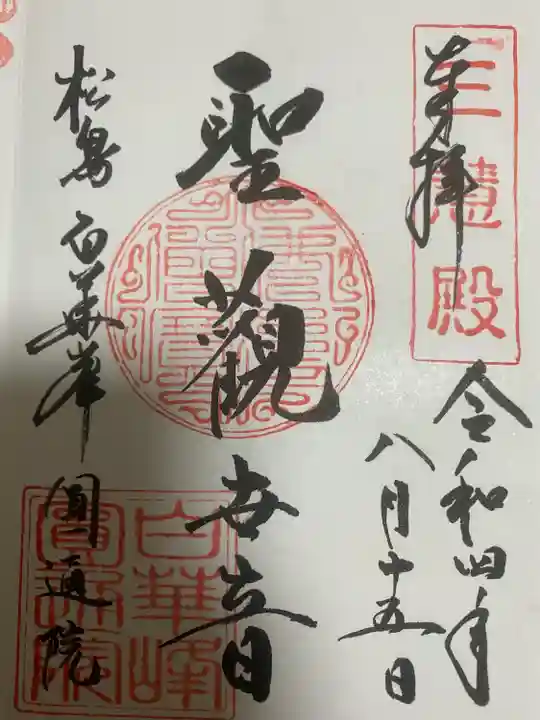 奉拝
三慧殿
令和四年
八月十五日
聖観世音
松島 白華峰 圓通院
白華峰
圓通院